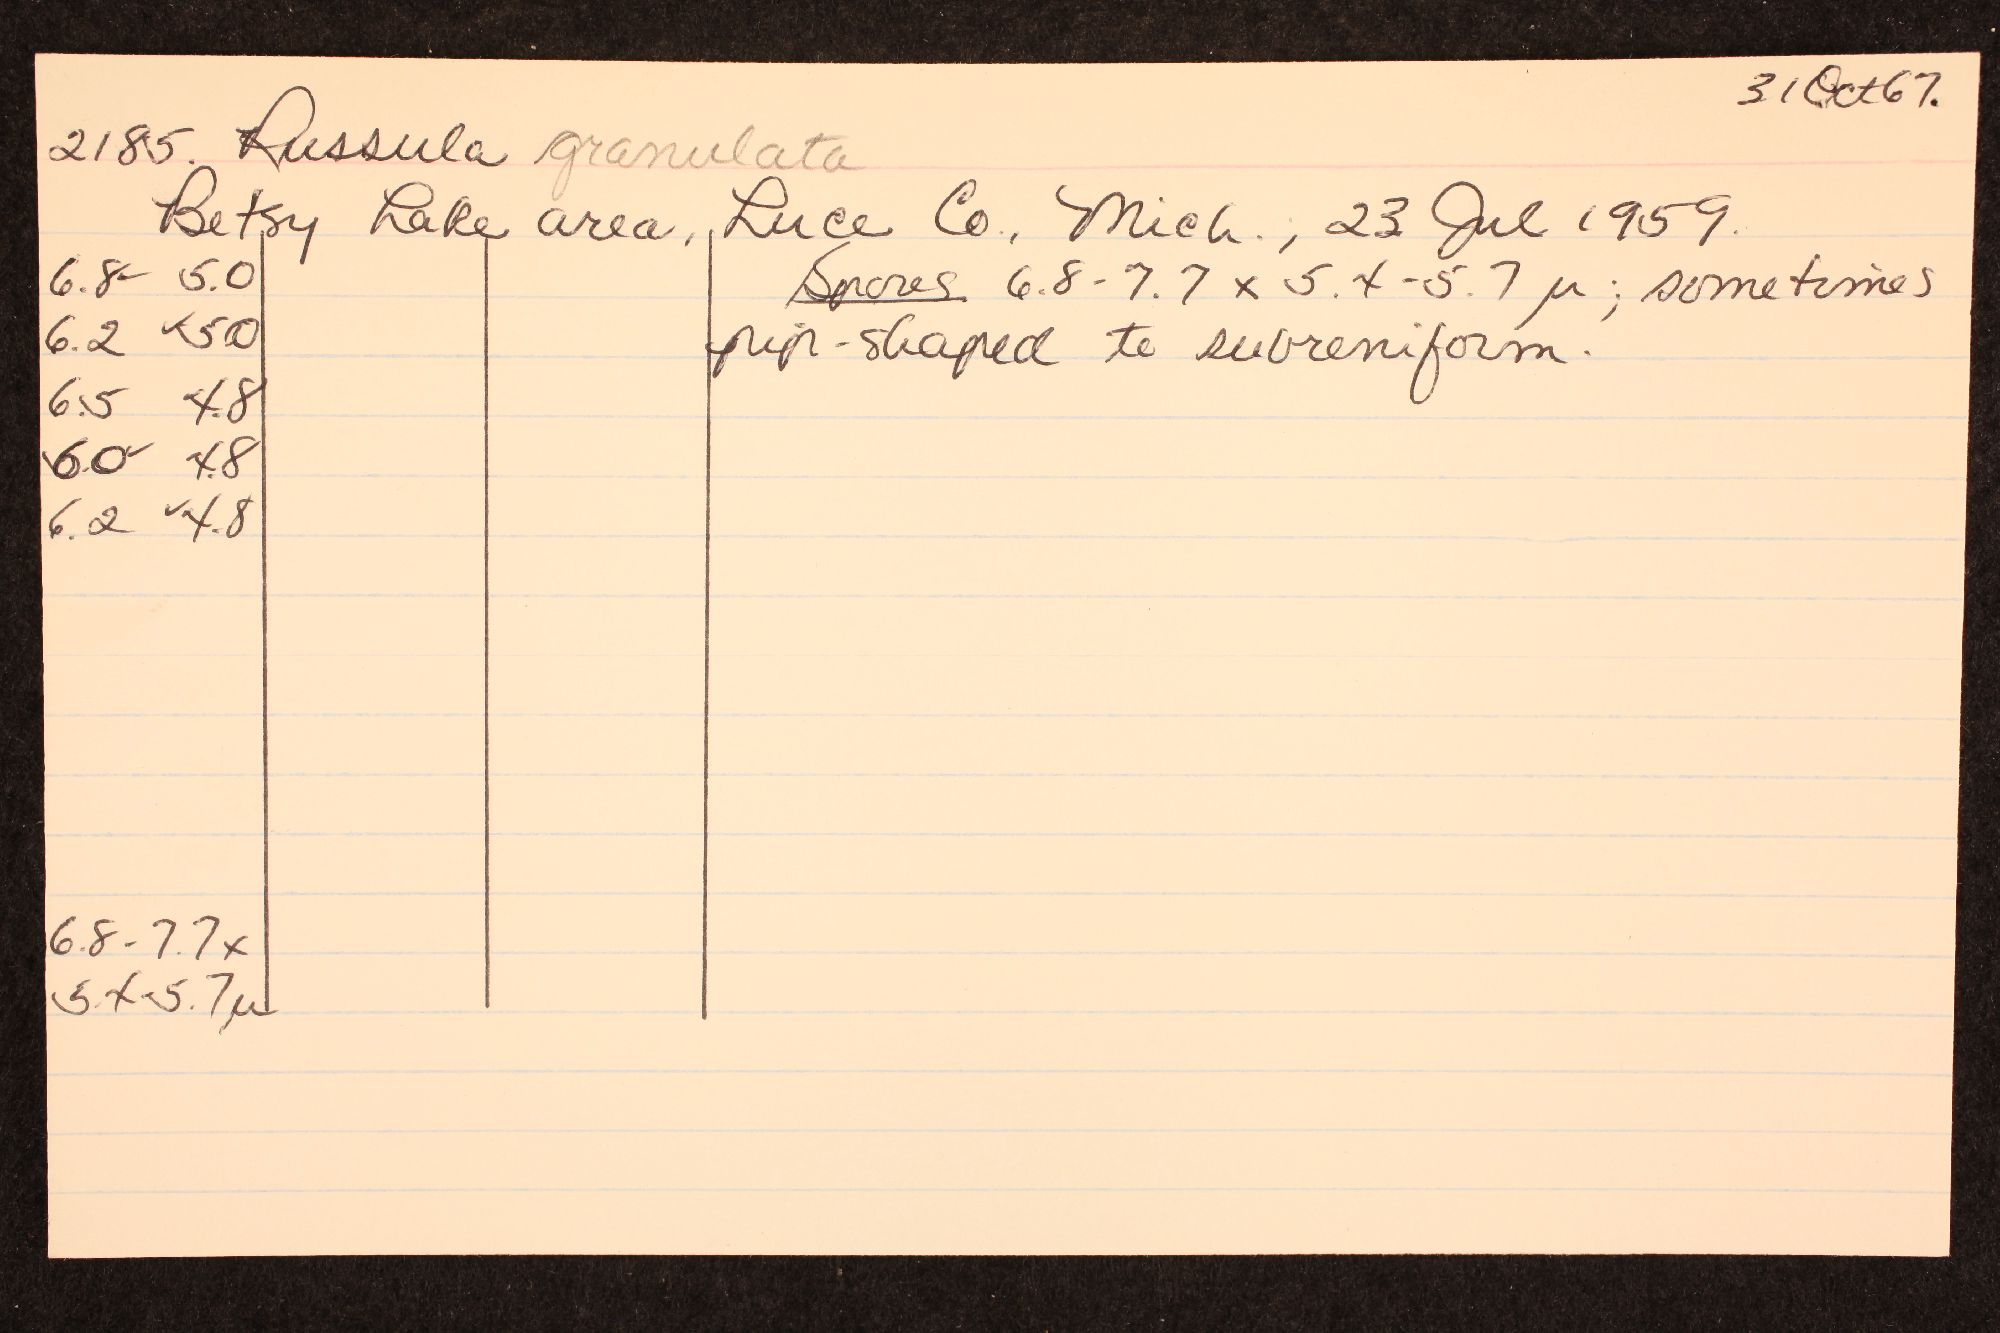 31 Oct 67.
2185. Russula granulata
Betsy Lake area, Luce Co., Mich.; 23 Jul 1959.
Spores 6.8-7.7 x 5.4-5.7 μ; sometimes
pip-shaped to subreniform.
6.8✓ 5.0
6.2 ✓5.0
6.5 4.8
6.0✓ 4.8
6.2 ✓4.8
6.8-7.7 x
5.4-5.7 μ